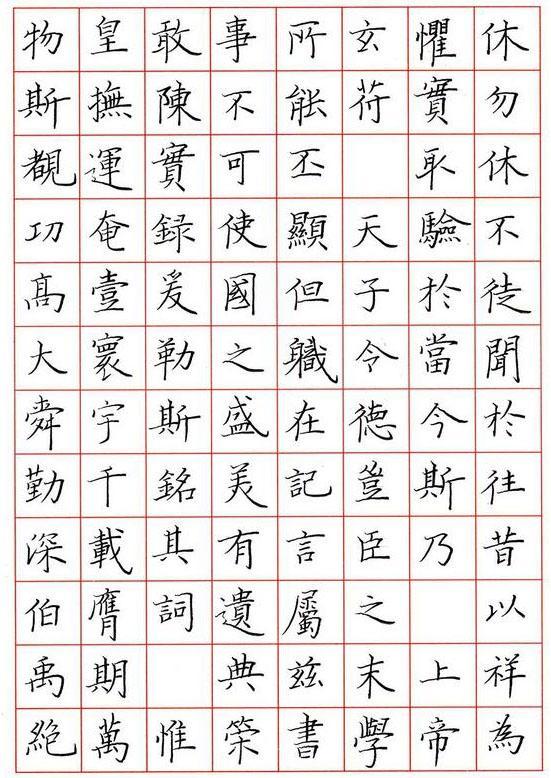 休勿休不徒聞於往昔以祥為
懼實取驗於當今斯乃 上帝
玄苻 天子令德豈臣之末學
所能丕顯但軄在記言屬兹書
事不可使國之盛美有遺典筞
敢陳實録爰勒斯銘其詞 惟
皇撫運奄壹寰宇千載膺期萬
物斯覩功髙大舜勤深伯禹絶